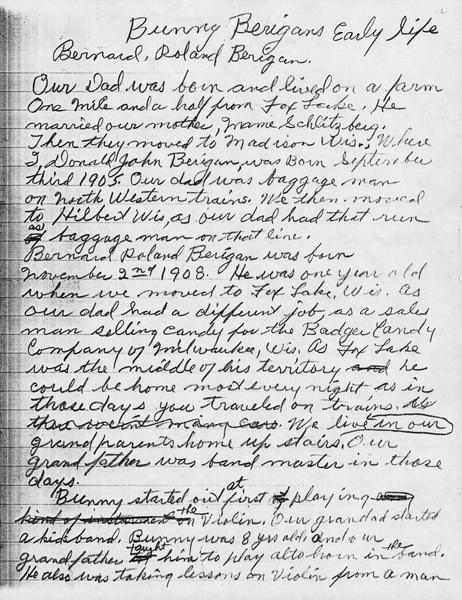 Bunny Berigans Early life
Bernard, Roland Berigan.
Our Dad was born and lived on a farm
One mile and a half from Fox Lake. He
married our mother, Mamie Schlitzberg.
Then they moved to Madison Wis., Where
I, Donald John Berigan, was Born September
third 1905. Our dad was baggage man
on North Western trains. We then moved
to Hilbert Wis, as our dad had that run
as baggage man on that line.
Bernard Roland Berigan was born
November 2nd 1908. He was one year old
when we moved to Fox Lake, Wis. as
our dad had a different job, as a sales
man selling candy for the Badger Candy
Company of Milwaukee, Wis. As Fox Lake
was the middle of his territory and he
could be home most every night as in
those days you traveled on trains. as
there weren't many cars. We live in our
grandparents home up stairs. Our
grandfather was band master in those
days.
Bunny started out at first playing
kind of instrument on the Violin. Our grandad started
a kid band. Bunny was 8 yrs old and our
grandfather taught him to play alto horn in the band.
He also was taking lessons on Violin from a man